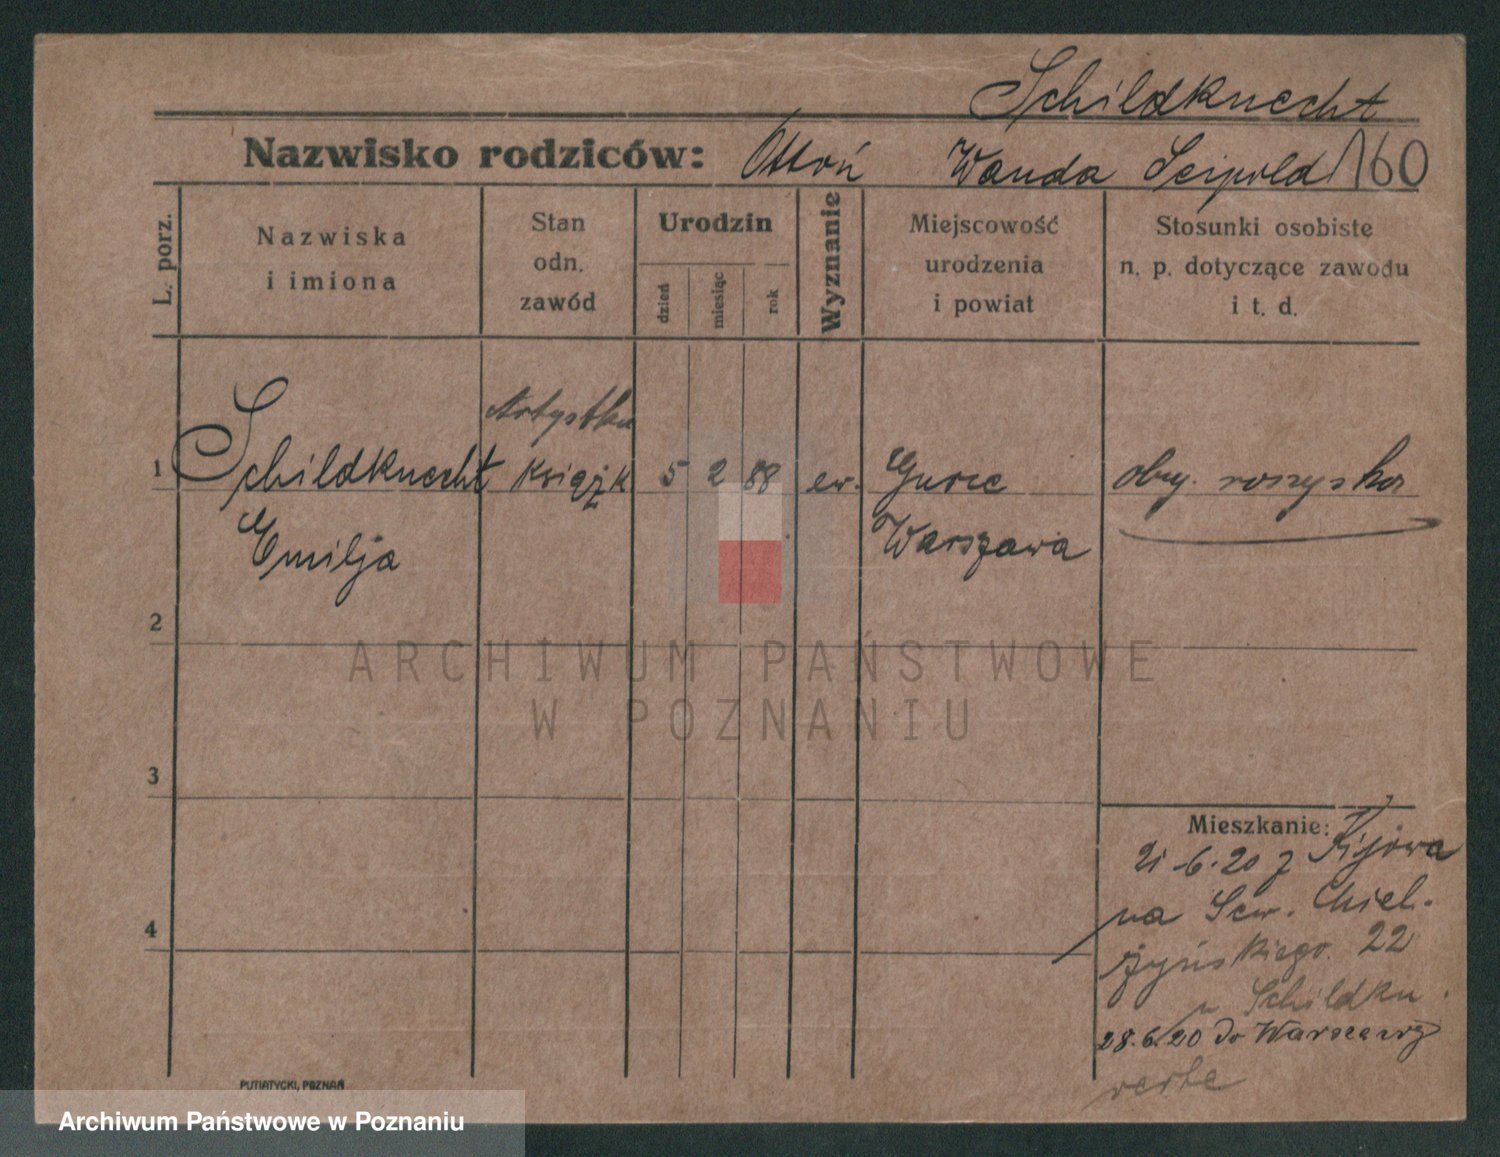 Schildknecht
Nazwisko rodziców: Otton Wanda Leipold 160
L. porz.
Nazwiska
i imiona
Stan
odn.
zawód
Urodzin
dzień
miesiąc
rok
Wyznanie
Miejscowość
urodzenia
i powiat
Stosunki osobiste
n. p. dotyczące zawodu
i t. d.
Artystka
1 Schildknecht książk 5 2 88 ew. Gurce oby. rosyska
Emilja Warszawa
2
3
4
Mieszkanie: Kijowa
21-6.20 z
na Sew. Miel-
żyńskiego 22
u Schildkn.
28.6.20 do Warszawy
verte
PUTIATYCKI, POZNAŃ
ARCHIWUM PAŃSTWOWE
W POZNANIU
Archiwum Państwowe w Poznaniu